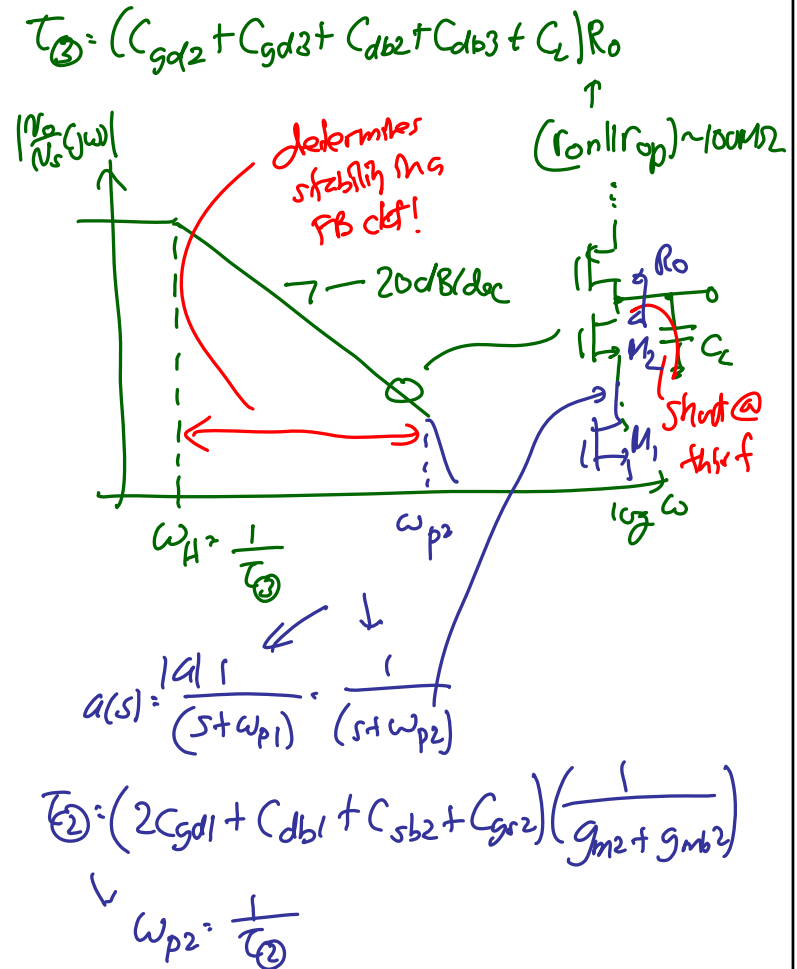 τ③ = (Cgd2 + Cgd3 + Cdb2 + Cdb3 + CL) Ro
↑
(ron || rop) ~100MΩ
|vo/vs (jω)|
determines
stability in a
FB ckt!
-20dB/dec
Ro
M2
CL
short @
this f
M1
log ω
ωH = 1/τ③
ωp2
a(s) = |a| 1/(s+ωp1) · 1/(s+ωp2)
τ② = (2Cgd1 + Cdb1 + Csb2 + Cgs2) (1/(gm2 + gmb2))
ωp2 = 1/τ②